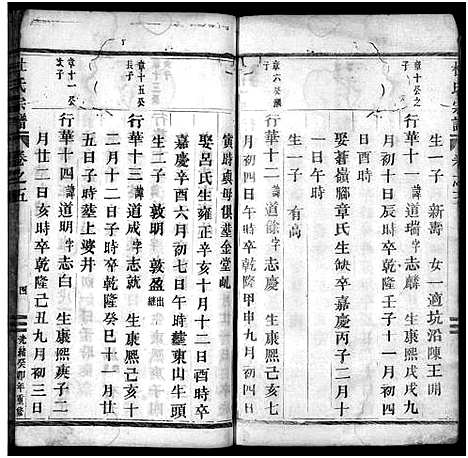 杜氏宗譜
生一子 新壽 女一適坑沿陳王開
章十公之子
行華十一 諱道瑞 字志麟 生康熙戊戌九
月初十日辰時卒乾隆壬子十一月初四
娶蒼嶺腳章氏生缺卒嘉慶丙子二月十
一日午時
生一子 有高
章六公
行華十二 諱道餘 字志 生康熙己亥七
月初四日 時卒乾隆甲申九月初四日
寅時與母俱塟金堂屼
娶呂氏生雍正辛亥十月十二日酉時卒
嘉慶辛酉六月初七日午時塟東山牛頭
生二子 敦明 敦盈 出繼
章十五公長子
行華十三 諱道成 字志 生康熙己亥十
二月十二日子時卒乾隆癸巳十一月廿
五日子時塟上婆井
章十一公次子
行華十四 諱道明 字志白 生康熙庚子二
月廿二日亥時卒乾隆己丑九月初三日
杜氏宗譜 卷之五
四
光緒癸卯年重修